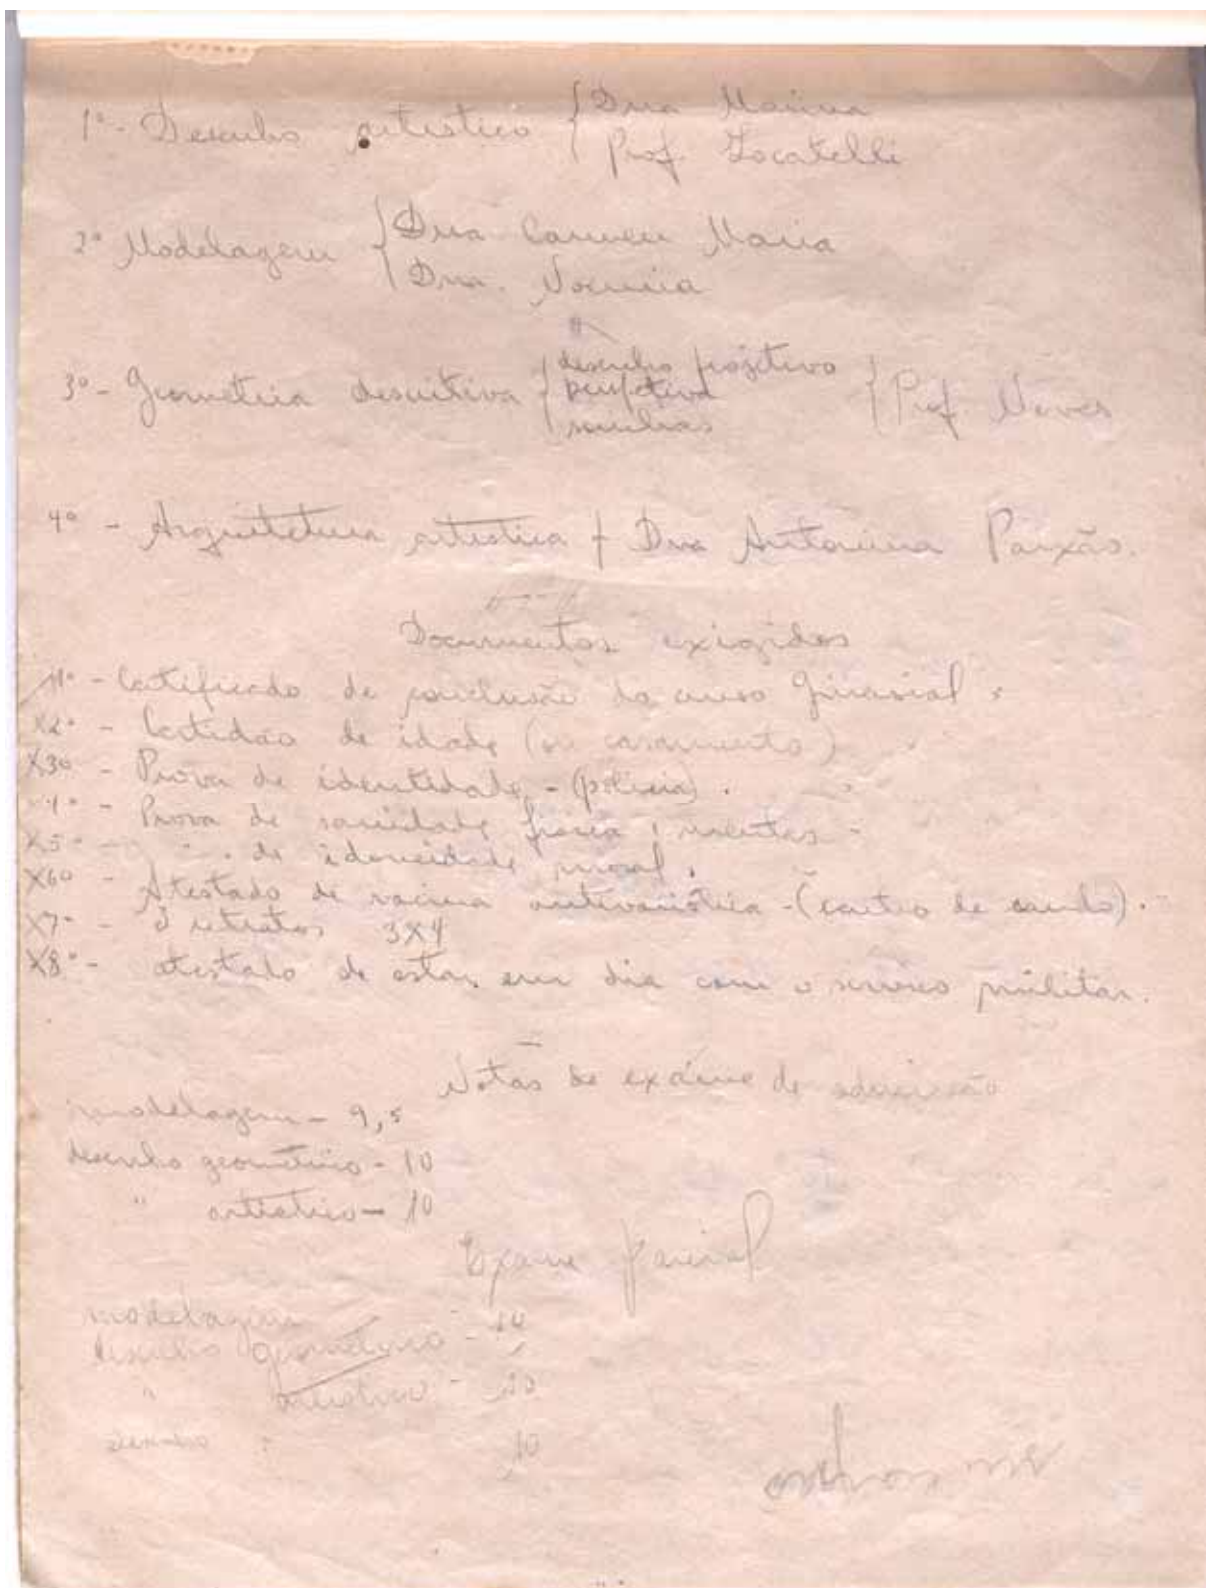 1º - Desenho artistico { Dna Marina
Prof. Locatelli
2º Modelagem { Dna Carmen Maria
Dna. Noemia
3º - Geometria descritiva { desenho projetivo
perspetiva
sombras
{ Prof. Neves
4º - Arquitetura artistica { Dna Antonina Paixão.
Documentos exigidos
1º - Certificado de conclusão do curso ginasial.
X2º - Certidão de idade (ou casamento)
X3º - Prova de identidade - (policia).
4º - Prova de sanidade fisica e mental -
X5º - " de idoneidade moral.
X6º - Atestado de vacina antivariólica - (centro de saude).
X7º - 3 retratos 3X4
X8º - atestado de estar em dia com o serviço militar.
Notas de exáme de admissão
modelagem - 9,5
desenho geométrico - 10
" artistico - 10
Exame parcial
modelagem
desenho geométrico - 10
" artistico - 10
10